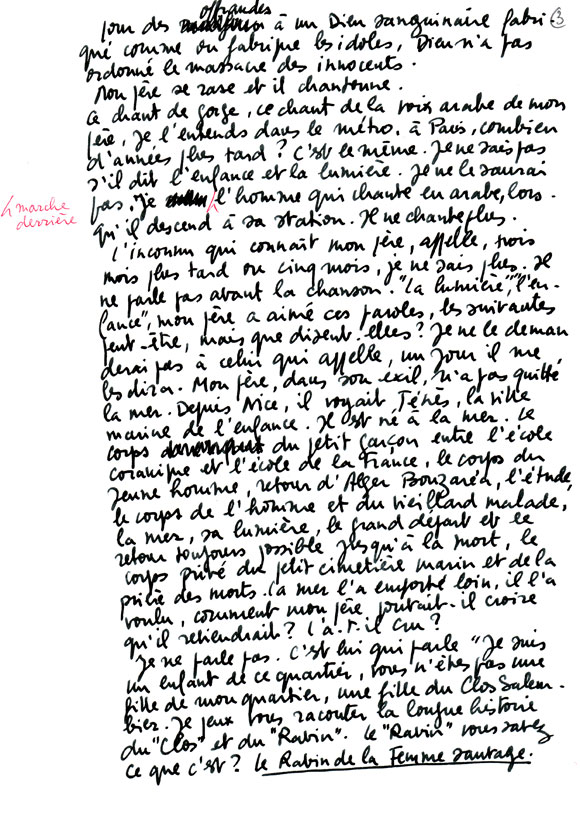 offrandes
pour des à un Dieu sanguinaire fabri- 3
qué comme on fabrique les idoles, Dieu n'a pas
ordonné le massacre des innocents.
Mon père se rase et il chantonne.
Ce chant de gorge, ce chant de la voix arabe de mon
père, je l'entends dans le métro. à Paris, combien
d'années plus tard? C'est le même. Je ne sais pas
s'il dit l'enfance et la lumière. Je ne le saurai
pas. Je l'homme qui chante en arabe, lors-
marche
derrière
qu'il descend à sa station. Il ne chante plus.
L'inconnu qui connaît mon père, appelle, trois
mois plus tard ou cinq mois, je ne sais plus. Il
ne parle pas avant la chanson. "La lumière", "l'en-
fance", mon père a aimé ces paroles, les suivantes
peut-être, mais que disent-elles? Je ne le deman
derai pas à celui qui appelle, un jour il me
les dira. Mon père, dans son exil, n'a pas quitté
la mer. Depuis Nice, il voyait Ténès, la ville
marine de l'enfance. Il est né à la mer. Le
corps du petit garçon entre l'école
coranique et l'école de la France, le corps du
jeune homme, retour d'Alger Bouzaréa, l'étude,
le corps de l'homme et du vieillard malade,
la mer, sa lumière, le grand départ et le
retour toujours possible jusqu'à la mort, le
corps privé du petit cimetière marin et de la
prière des morts. La mer l'a emporté loin, il l'a
voulu, comment mon père pouvait-il croire
qu'il reviendrait? L'a-t-il cru?
Je ne parle pas. C'est lui qui parle "Je suis
un enfant de ce quartier, vous n'êtes pas une
fille de mon quartier, une fille du Clos Salem-
bier. Je peux vous raconter la longue histoire
du "Clos" et du "Ravin". Le "Ravin" vous savez
ce que c'est? Le Ravin de la Femme sauvage.